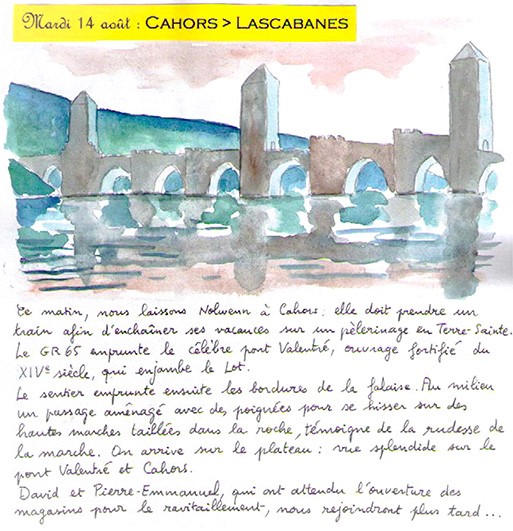 Mardi 14 août : CAHORS > LASCABANES
Ce matin, nous laissons Nolwenn à Cahors : elle doit prendre un
train afin d'enchaîner ses vacances sur un pèlerinage en Terre-Sainte.
Le GR65 emprunte le célèbre pont Valentré, ouvrage fortifié du
XIVe siècle, qui enjambe le Lot.
Le sentier emprunte ensuite les bordures de la falaise. Au milieu
un passage aménagé avec des poignées pour se hisser sur des
hautes marches taillées dans la roche, témoigne de la rudesse de
la marche. On arrive sur le plateau : vue splendide sur le
pont Valentré et Cahors.
David et Pierre-Emmanuel, qui ont attendu l'ouverture des
magasins pour le ravitaillement, nous rejoindront plus tard...